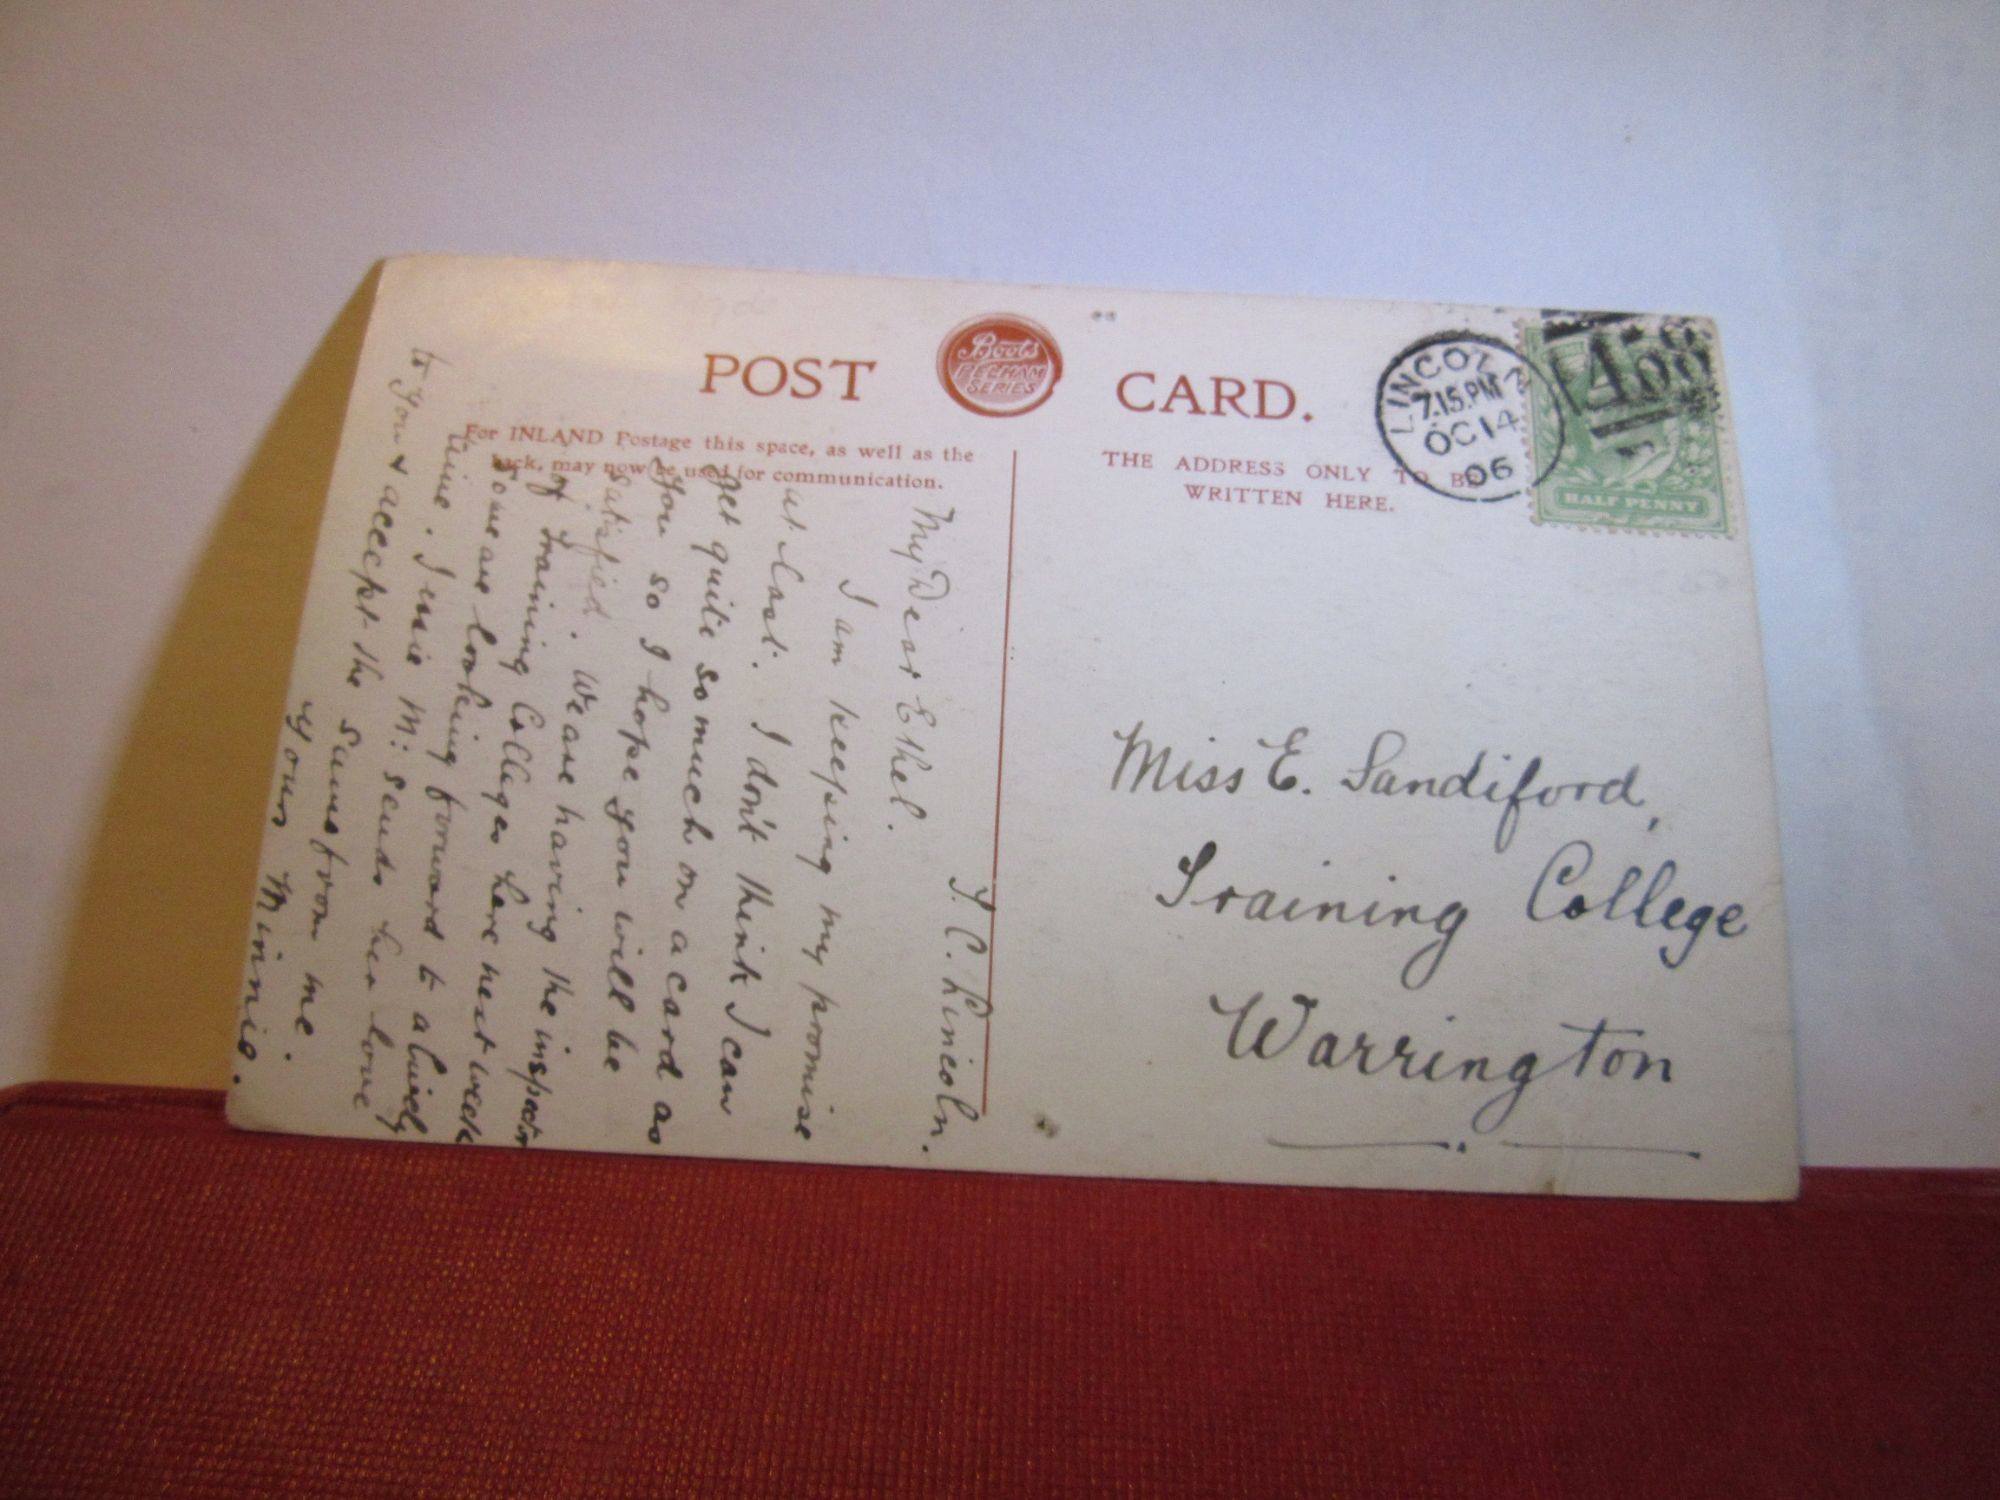 POST CARD.
Boots
PELHAM
SERIES
For INLAND Postage this space, as well as the
back, may now be used for communication.
THE ADDRESS ONLY TO BE
WRITTEN HERE.
LINCOLN
7.15.PM
OC 14
06
458
HALF PENNY
Miss E. Sandiford,
Training College
Warrington
T. C. Lincoln.
My Dear Ethel.
I am keeping my promise
at last. I don't think I can
get quite so much on a card as
you so I hope you will be
satisfied. We are having the inspector
of Training Colleges here next week
so we are looking forward to a lively
time. M: sends her love
to you & accept the same from me.
Yours Minnie.